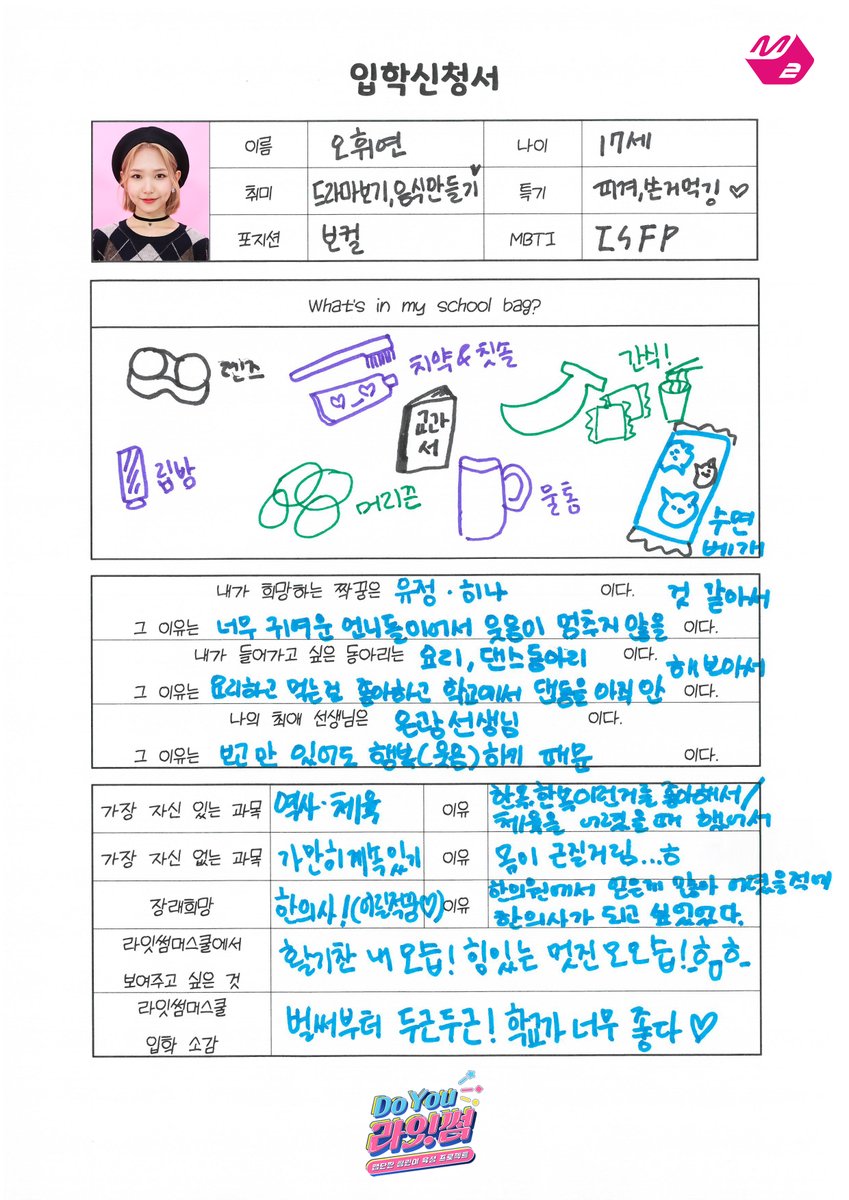 M2
입학신청서
이름 오휘연 나이 17세
취미 드라마보기,음식만들기 특기 피겨,쓴거먹깅♡
포지션 보컬 MBTI ISFP
What's in my school bag?
렌즈
치약&칫솔
간식!
교과서
립밤
머리끈
물통
수면
베개
내가 희망하는 짝꿍은 유정·히나 이다.
그 이유는 너무 귀여운 언니들이여서 웃음이 멈추지 않을 것 같아서 이다.
내가 들어가고 싶은 동아리는 요리, 댄스동아리 이다.
그 이유는 요리하고 먹는걸 좋아하고 학교에서 댄동을 아직 안 해보아서 이다.
나의 최애 선생님은 은광선생님 이다.
그 이유는 보고만 있어도 행복(웃음)하기 때문 이다.
가장 자신 있는 과목 역사·체육 이유 한옥,한복이런거를 좋아해서/
체육을 어렸을때 했어서
가장 자신 없는 과목 가만히계속있기 이유 몸이 근질거림...ㅎ
장래희망 한의사!(어릴적꿈♡) 이유 한의원에서 얻은게 많아 어렸을적에
한의사가 되고 싶었었다.
라잇썸머스쿨에서
보여주고 싶은 것 활기찬 내 모습! 힘있는 멋진 모오습!
라잇썸머스쿨
입학 소감 벌써부터 두근두근! 학교가 너무 좋다♡
Do You
라잇썸